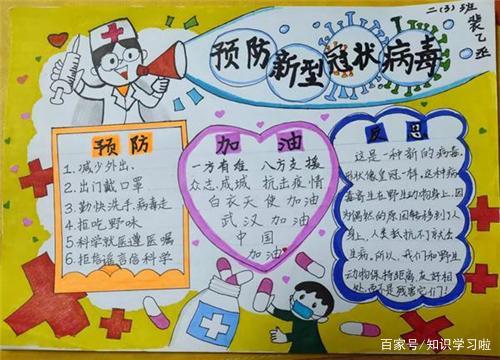 二(3)班
裴乙丞
预防新型冠状病毒
预防
1.减少外出、
2.出门戴口罩
3.勤快洗手、病毒走
4.拒吃野味
5.科学就医遵医嘱
6.拒信谣言倍科学
加油
一方有难 八方支援
众志成城 抗击疫情
白衣天使加油
武汉加油
中国
加油
反思
这是一种新的病毒，
形状像皇冠一样，这种病
毒寄生在野生动物身上，因
为偶然的原因触移到了人
身上，人类抵抗不了就会
生病。所以，我们和野生
动物保持距离，友好相
处，而不是残害它们！
百家号/知识学习啦